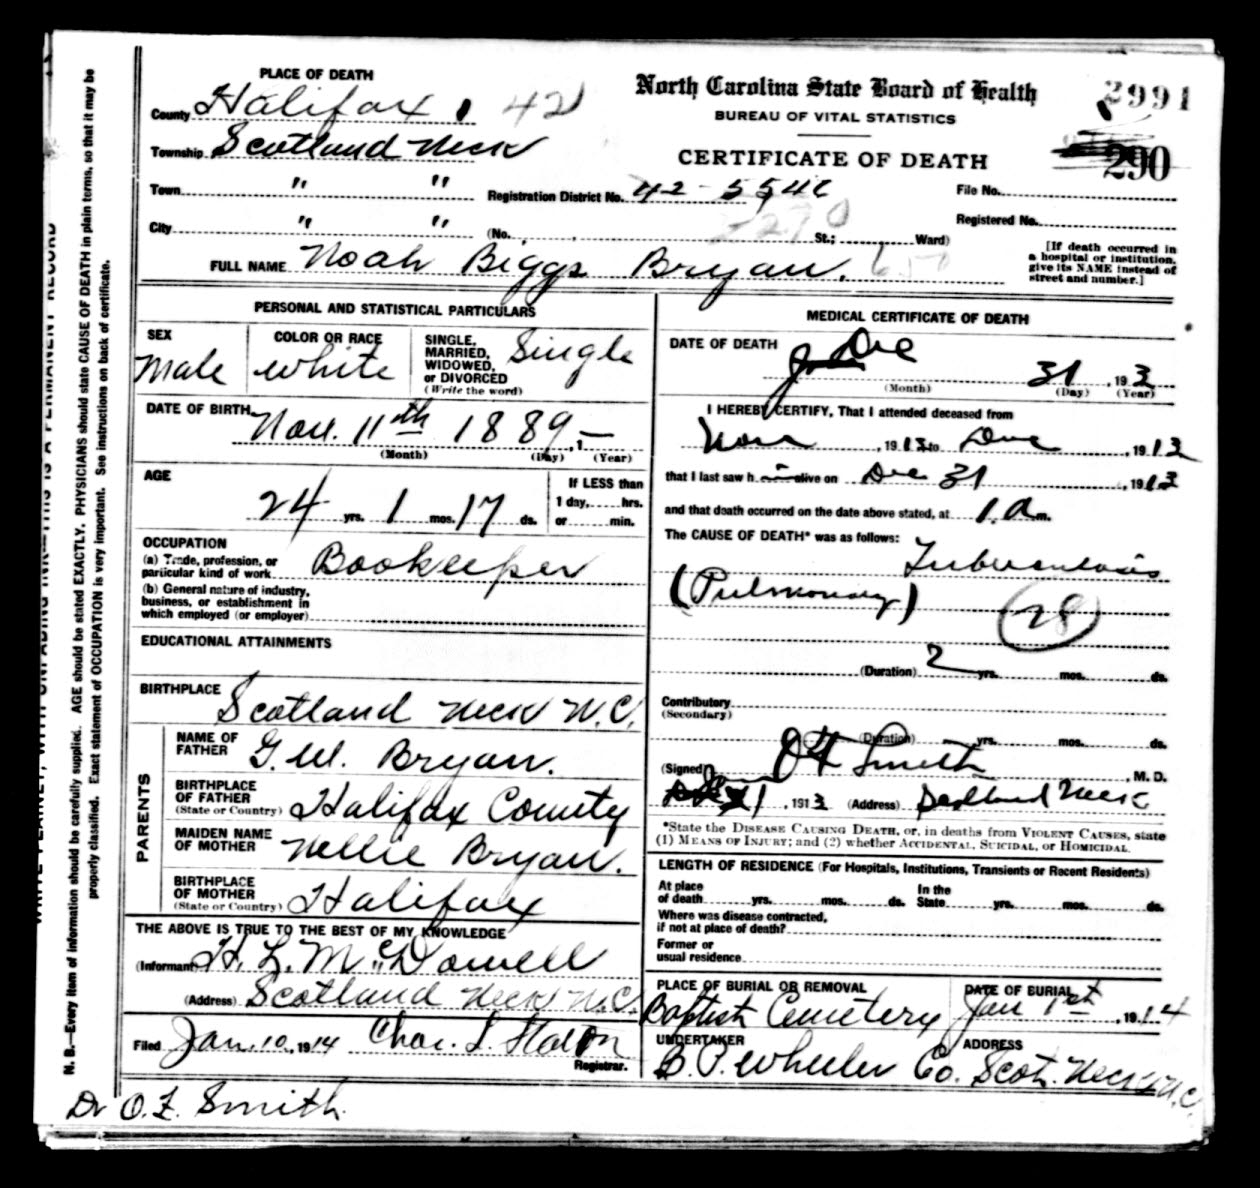 PLACE OF DEATH
County Halifax 42
Township Scotland Neck
Town " "
City " "
North Carolina State Board of Health
BUREAU OF VITAL STATISTICS
CERTIFICATE OF DEATH
2991
290
Registration District No. 42-554c
File No.
(No. , St.; Ward)
Registered No.
[If death occurred in
a hospital or institution,
give its NAME instead of
street and number.]
FULL NAME Noah Biggs Bryan.
PERSONAL AND STATISTICAL PARTICULARS
SEX
Male
COLOR OR RACE
white
SINGLE,
MARRIED,
WIDOWED,
or DIVORCED
(Write the word)
Single
DATE OF BIRTH
Nov. 11th 1889, 1—
(Month) (Day) (Year)
AGE
24 yrs. 1 mos. 17 ds.
If LESS than
1 day, hrs.
or min.
OCCUPATION
(a) Trade, profession, or
particular kind of work Bookeeper
(b) General nature of industry,
business, or establishment in
which employed (or employer)
EDUCATIONAL ATTAINMENTS
BIRTHPLACE
Scotland Neck N.C.
PARENTS
NAME OF
FATHER
G. W. Bryan.
BIRTHPLACE
OF FATHER
(State or Country) Halifax County
MAIDEN NAME
OF MOTHER
Nellie Bryan.
BIRTHPLACE
OF MOTHER
(State or Country) Halifax
THE ABOVE IS TRUE TO THE BEST OF MY KNOWLEDGE
(Informant H. L. McDowell
(Address) Scotland Neck N.C.
Filed Jan. 10, 1914
Registrar.
MEDICAL CERTIFICATE OF DEATH
DATE OF DEATH
Dec 31, 1913
(Month) (Day) (Year)
I HEREBY CERTIFY, That I attended deceased from
, 1913 to Dec, 1913
that I last saw h alive on Dec 31, 1913
and that death occurred on the date above stated, at 1 a m.
The CAUSE OF DEATH* was as follows:
Tuberculosis
(Pulmonary)
28
(Duration) 2 yrs. mos. ds.
Contributory
(Secondary)
(Duration) yrs. mos. ds.
(Signed) O F Smith, M. D.
Jan 1, 1913 (Address) Scotland Neck
*State the DISEASE CAUSING DEATH, or, in deaths from VIOLENT CAUSES, state
(1) MEANS OF INJURY; and (2) whether ACCIDENTAL, SUICIDAL, or HOMICIDAL.
LENGTH OF RESIDENCE (For Hospitals, Institutions, Transients or Recent Residents)
At place
of death yrs. mos. ds.
In the
State yrs. mos. ds.
Where was disease contracted,
if not at place of death?
Former or
usual residence
PLACE OF BURIAL OR REMOVAL
Baptist Cemetery
DATE OF BURIAL
Jan 1st, 1914
UNDERTAKER
B. P. Wheeler Co.
ADDRESS
Scot. Neck N.C.
Dr O. F. Smith.
N. B.—Every item of information should be carefully supplied. AGE should be stated EXACTLY. PHYSICIANS should state CAUSE OF DEATH in plain terms, so that it may be
properly classified. Exact statement of OCCUPATION is very important. See instructions on back of certificate.